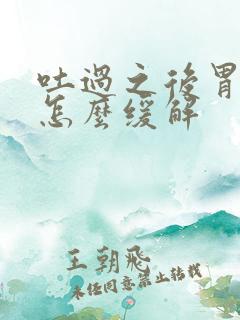 吐過之後胃
怎麼緩解
王朝飛
未经同意禁止转载